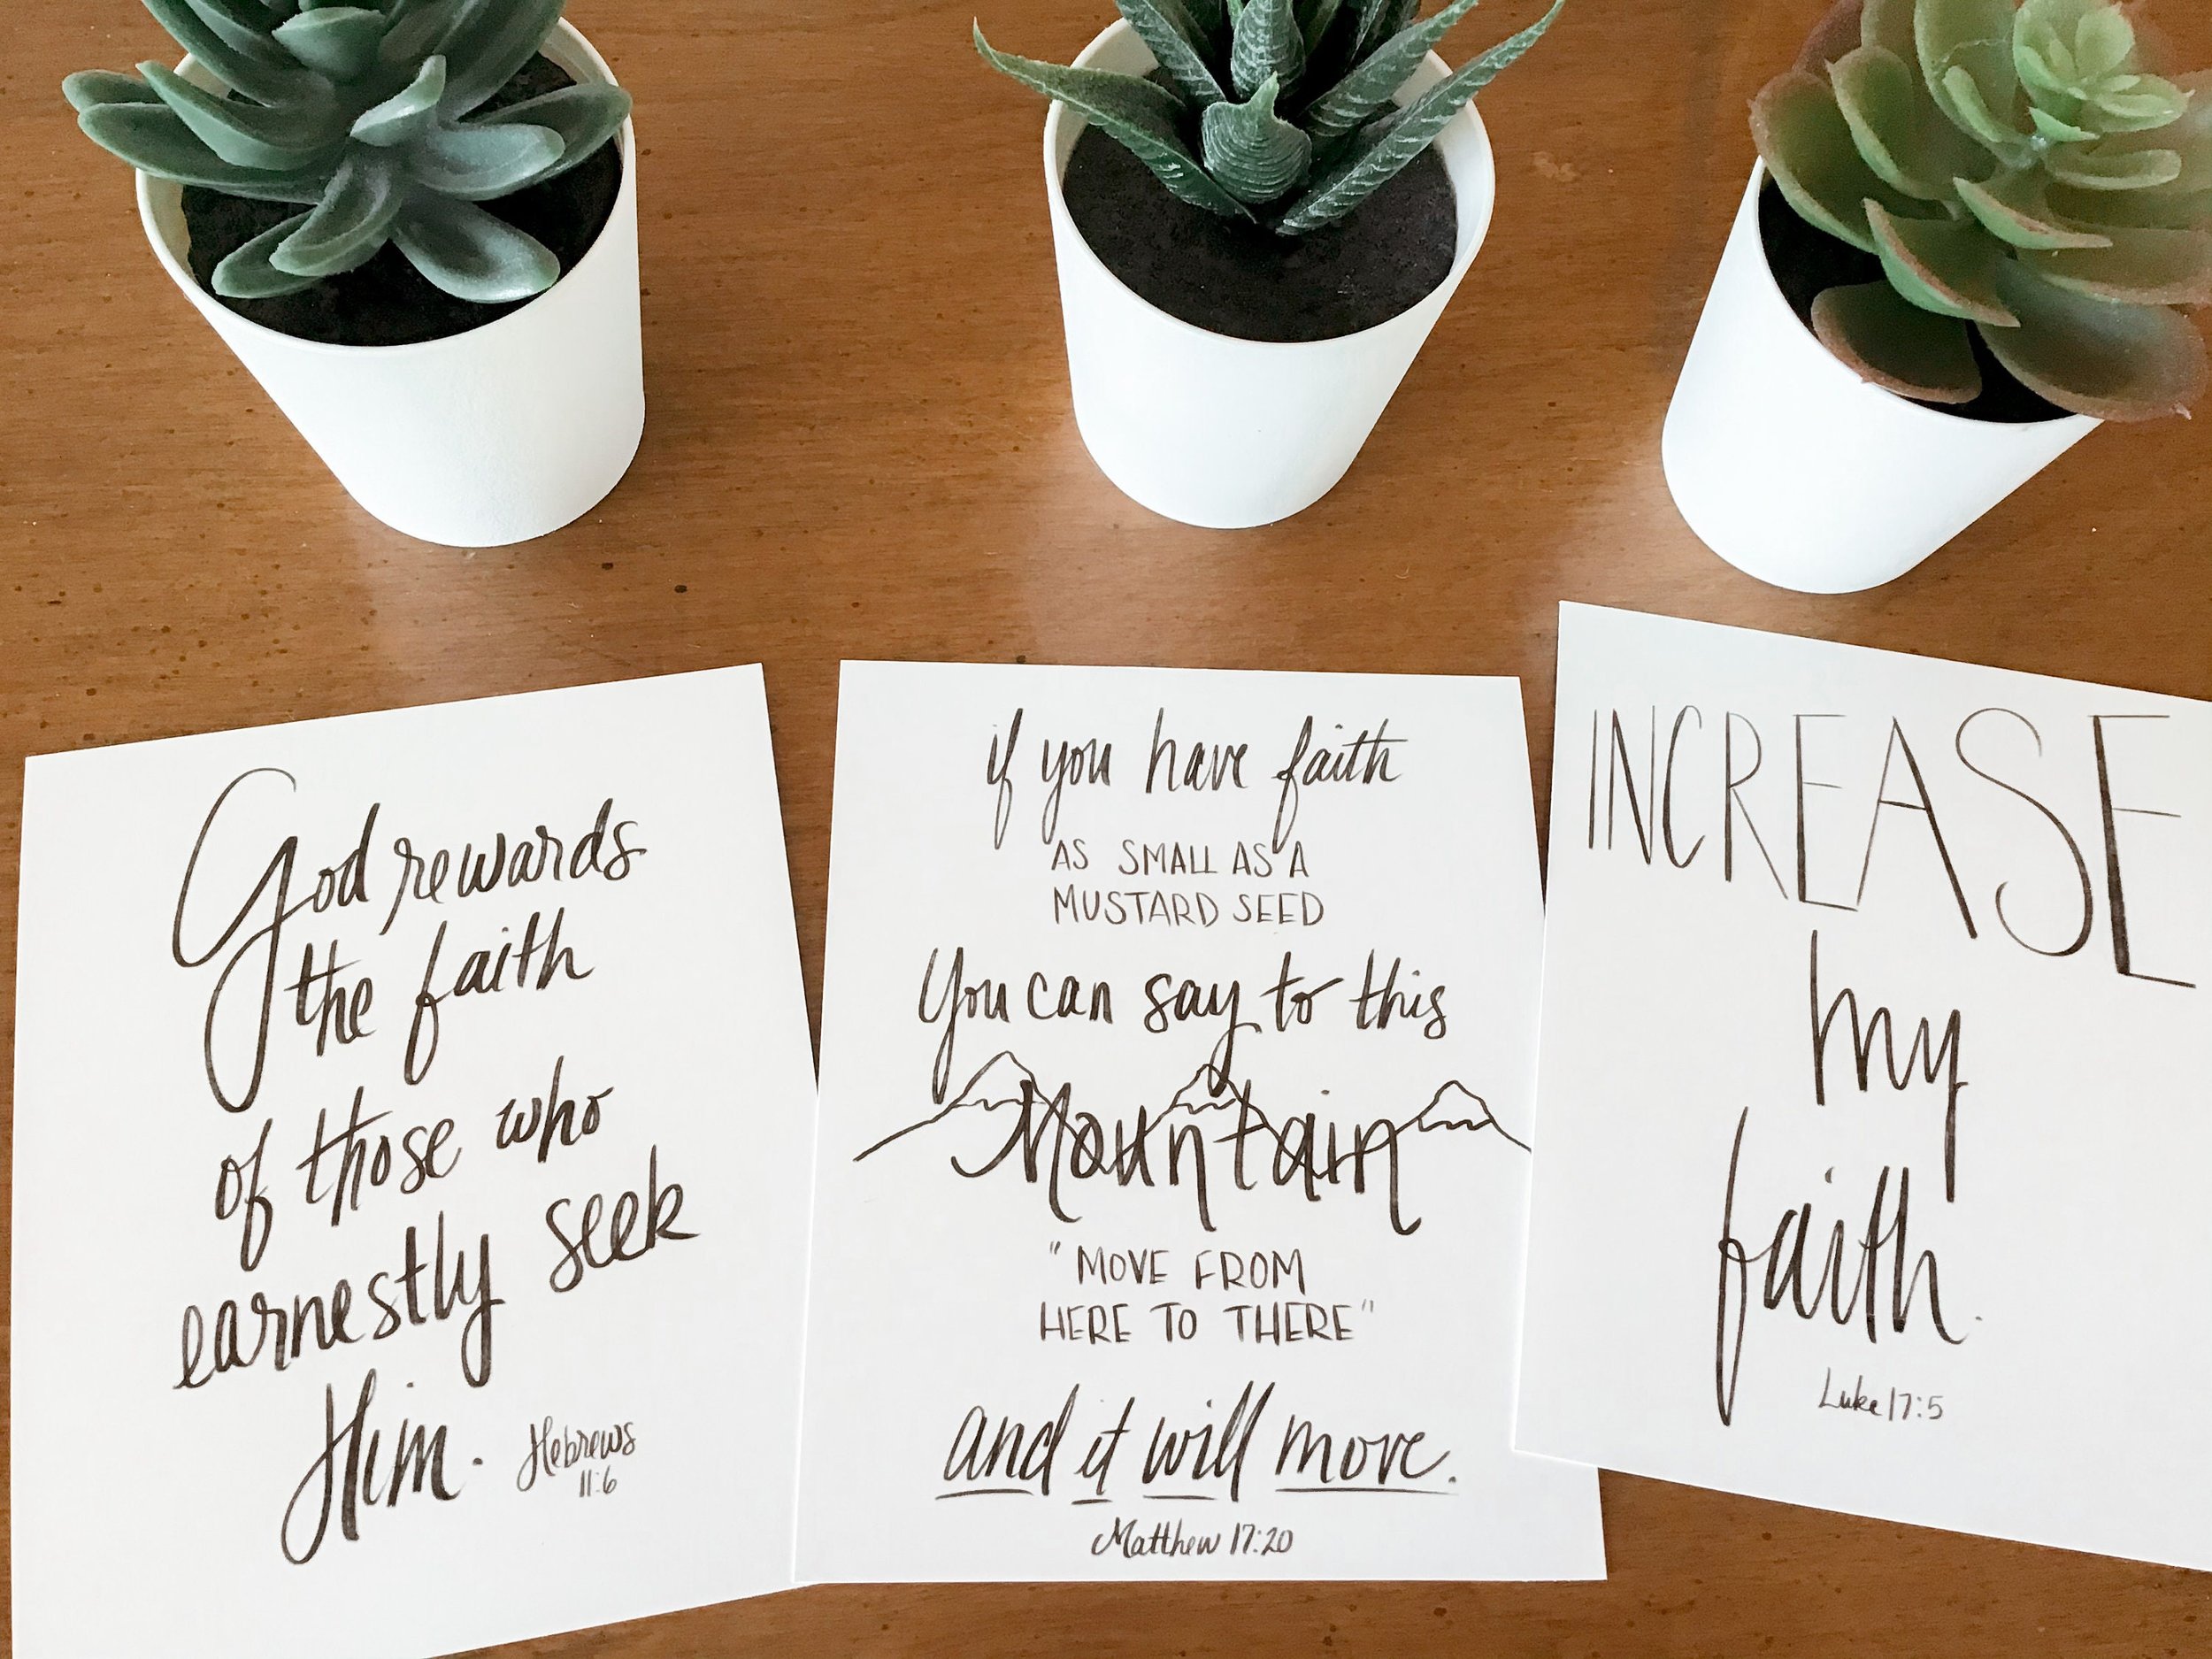 God rewards
the faith
of those who
earnestly seek
Him.
Hebrews
11:6
if you have faith
AS SMALL AS A
MUSTARD SEED
You can say to this
Mountain
"MOVE FROM
HERE TO THERE"
and it will move.
Matthew 17:20
INCREASE
my
faith.
Luke 17:5